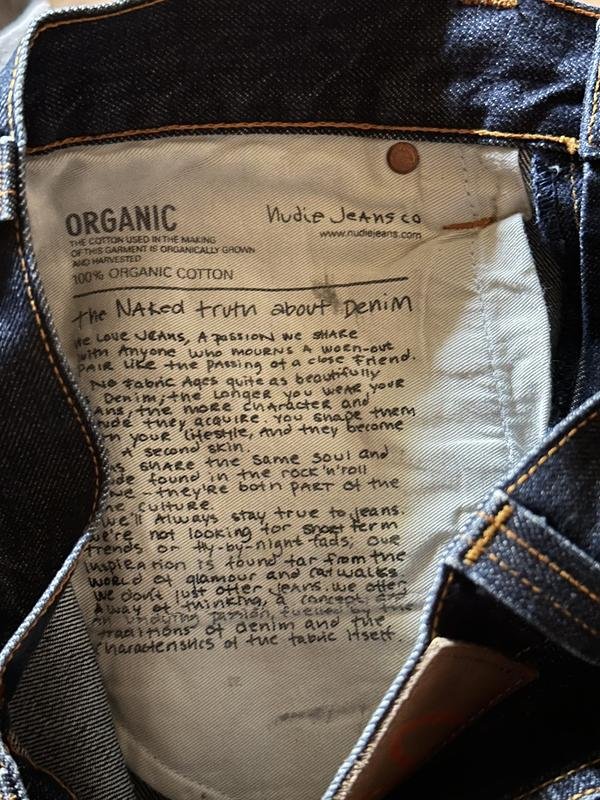 ORGANIC
Nudie Jeans co
THE COTTON USED IN THE MAKING
OF THIS GARMENT IS ORGANICALLY GROWN
AND HARVESTED
www.nudiejeans.com
100% ORGANIC COTTON
the Naked truth about Denim
We love jeans, a passion we share
with anyone who mourns a worn-out
pair like the passing of a close friend.
No fabric ages quite as beautifully
Denim; the longer you wear your
ans, the more character and
ude they acquire. You shape them
your lifestyle, and they become
a second skin.
share the same soul and
ude found in the rock'n'roll
– they're both part of the
me culture.
We'll always stay true to jeans.
We're not looking for short term
trends or fly-by-night fads; our
inspiration is found far from the
world of glamour and catwalks
We don't just offer jeans. We offer
a way of thinking, a concept and
an undying passion, fuelled by the
traditions of denim and the
characteristics of the fabric itself.